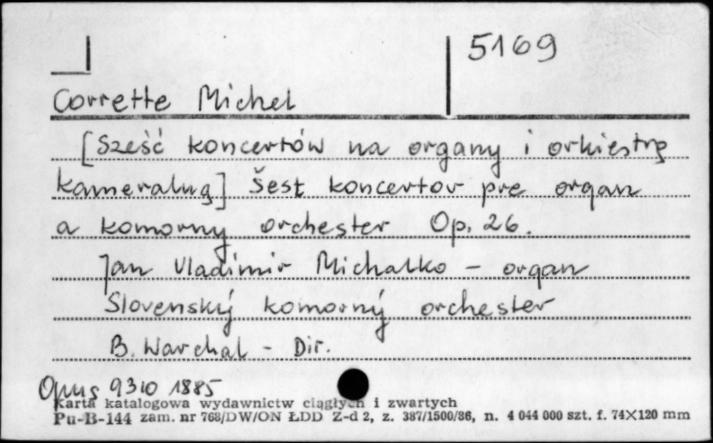 5169
Corrette Michel
[Sześć koncertów na organy i orkiestrę
kameralną] Šest koncertov pre organ
a komorny orchester Op. 26.
Jan Vladimir Michalko - organ
Slovenský komorný orchester
B. Warchal - Dir.
Opus 9310 1885
Karta katalogowa wydawnictw ciągłych i zwartych
Pu-B-144 zam. nr 768/DW/ON ŁDD Z-d 2, z. 387/1500/86, n. 4 044 000 szt. f. 74X120 mm